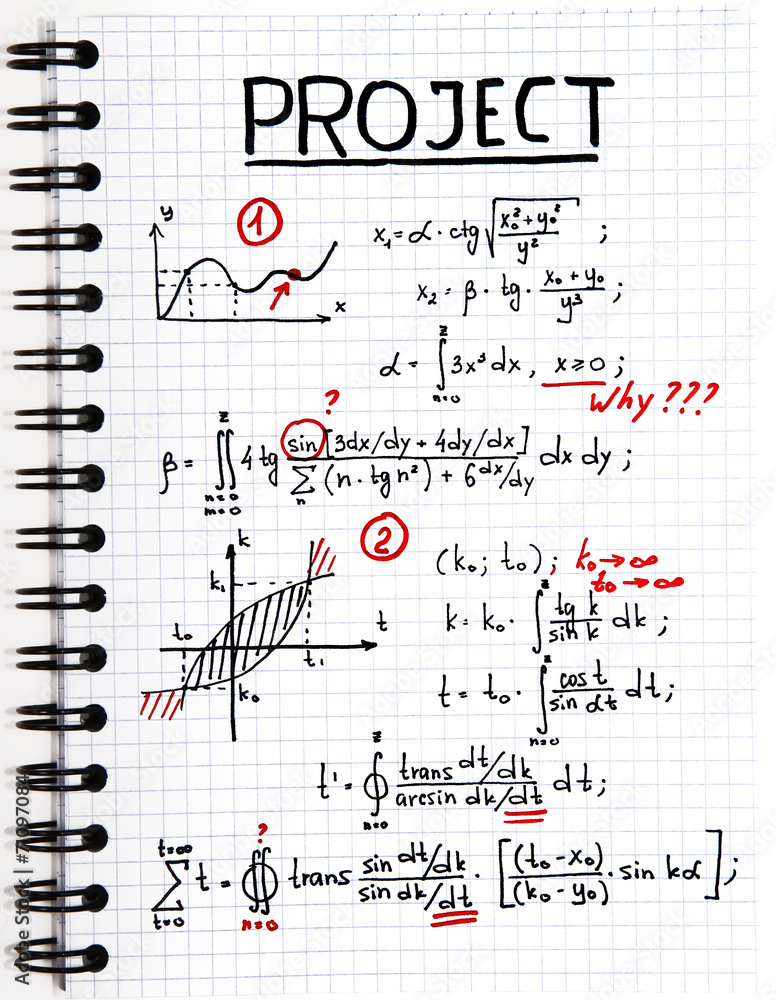 PROJECT
y
1
x
x₁ = α · ctg √((x₀² + y₀²)/y²) ;
x₂ = β · tg · (x₀ + y₀)/y³ ;
α = ∫ₙ₌₀ᶻ 3x³ dx , x ≥ 0 ;
Why ???
?
β = ∬ₙ₌₀ ₘ₌₀ᶻ 4 tg (sin [3dx/dy + 4dy/dx])/(∑ₙ (n · tg n²) + 6^(dx/dy)) dx dy ;
2
k
k₁
t₀
t
t₁
k₀
(k₀ ; t₀) ; k₀ → ∞
t₀ → ∞
k = k₀ · ∫ᶻ (tg k)/(sin k) dk ;
t = t₀ · ∫ₙ₌₀ᶻ (cos t)/(sin αt) dt ;
t' = ∮ₙ₌₀ᶻ (trans dt/dk)/(arcsin dk/dt) dt ;
?
∑ₜ₌₀ᵗ⁼∞ t = ∯ₙ₌₀ trans (sin dt/dk)/(sin dk/dt) · [((t₀ - x₀)/(k₀ - y₀)) · sin kα] ;
Adobe Stock | #71097084